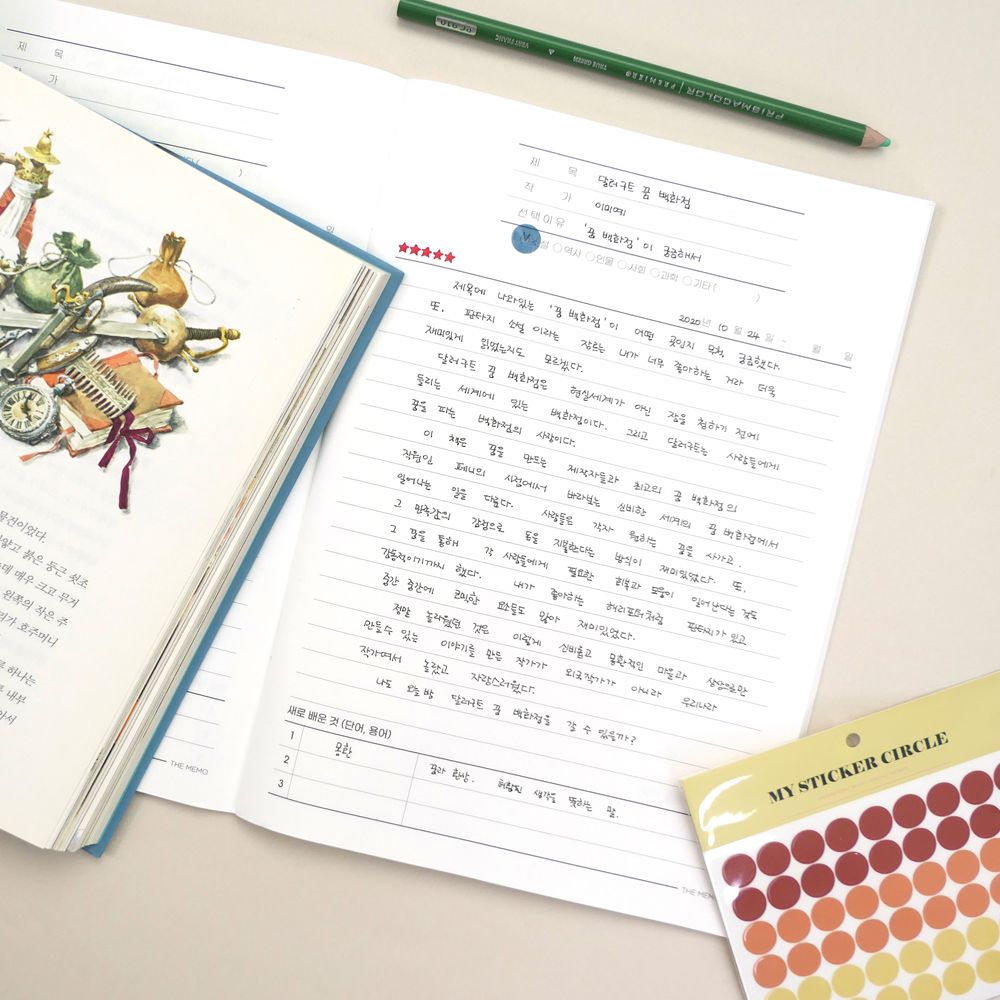 PRISMACOLOR | PREMIER®
TRUE GREEN
VERT FRANC
PC 910
제 목
작 가
제 목 달러구트 꿈 백화점
작 가 이미예
선택이유 '꿈 백화점'이 궁금해서
소설 역사 인물 사회 과학 기타( )
2020년 10월 24일 ~ 월 일
제목에 나와있는 '꿈 백화점'이 어떤 곳인지 무척 궁금했다.
또, 판타지 소설 이라는 장르는 내가 너무 좋아하는 거라 더욱
재미있게 읽었는지도 모르겠다.
달러구트 꿈 백화점은 현실세계가 아닌 잠을 청하기 전에
들리는 세계에 있는 백화점이다. 그리고 달러구트는 사람들에게
꿈을 파는 백화점의 사장이다.
이 책은 꿈을 만드는 제작자들과 최고의 꿈 백화점의
직원인 페니의 시점에서 바라보는 신비한 세계의 꿈 백화점에서
일어나는 일을 다룬다. 사람들은 각자 원하는 꿈을 사가고,
그 만족감의 감정으로 돈을 지불한다는 방식이 재미있었다. 또,
그 꿈을 통해 각 사람들에게 필요한 회복과 도움이 일어난다는 것도
감동적이기까지 했다. 내가 좋아하는 해리포터처럼 판타지가 있고
중간 중간에 코믹한 요소들도 많아 재미있었다.
정말 놀라웠던 것은 이렇게 신비롭고 몽환적인 마을과 상상으로만
만들수 있는 이야기를 만든 작가가 외국작가가 아니라 우리나라
작가여서 놀랐고 자랑스러웠다.
나도 오늘밤 달러구트 꿈 백화점을 갈 수 있을까?
새로 배운 것 (단어, 용어)
1 몽환 꿈과 환상. 허황된 생각을 뜻하는 말.
2
3
THE MEMO
THE MEMO
물건이었다.
얗고 붉은 둥근 쇳조
데 매우 크고 무거
왼쪽의 작은 주
러가 호주머니
로 하나는
내부
아서
MY STICKER CIRCLE